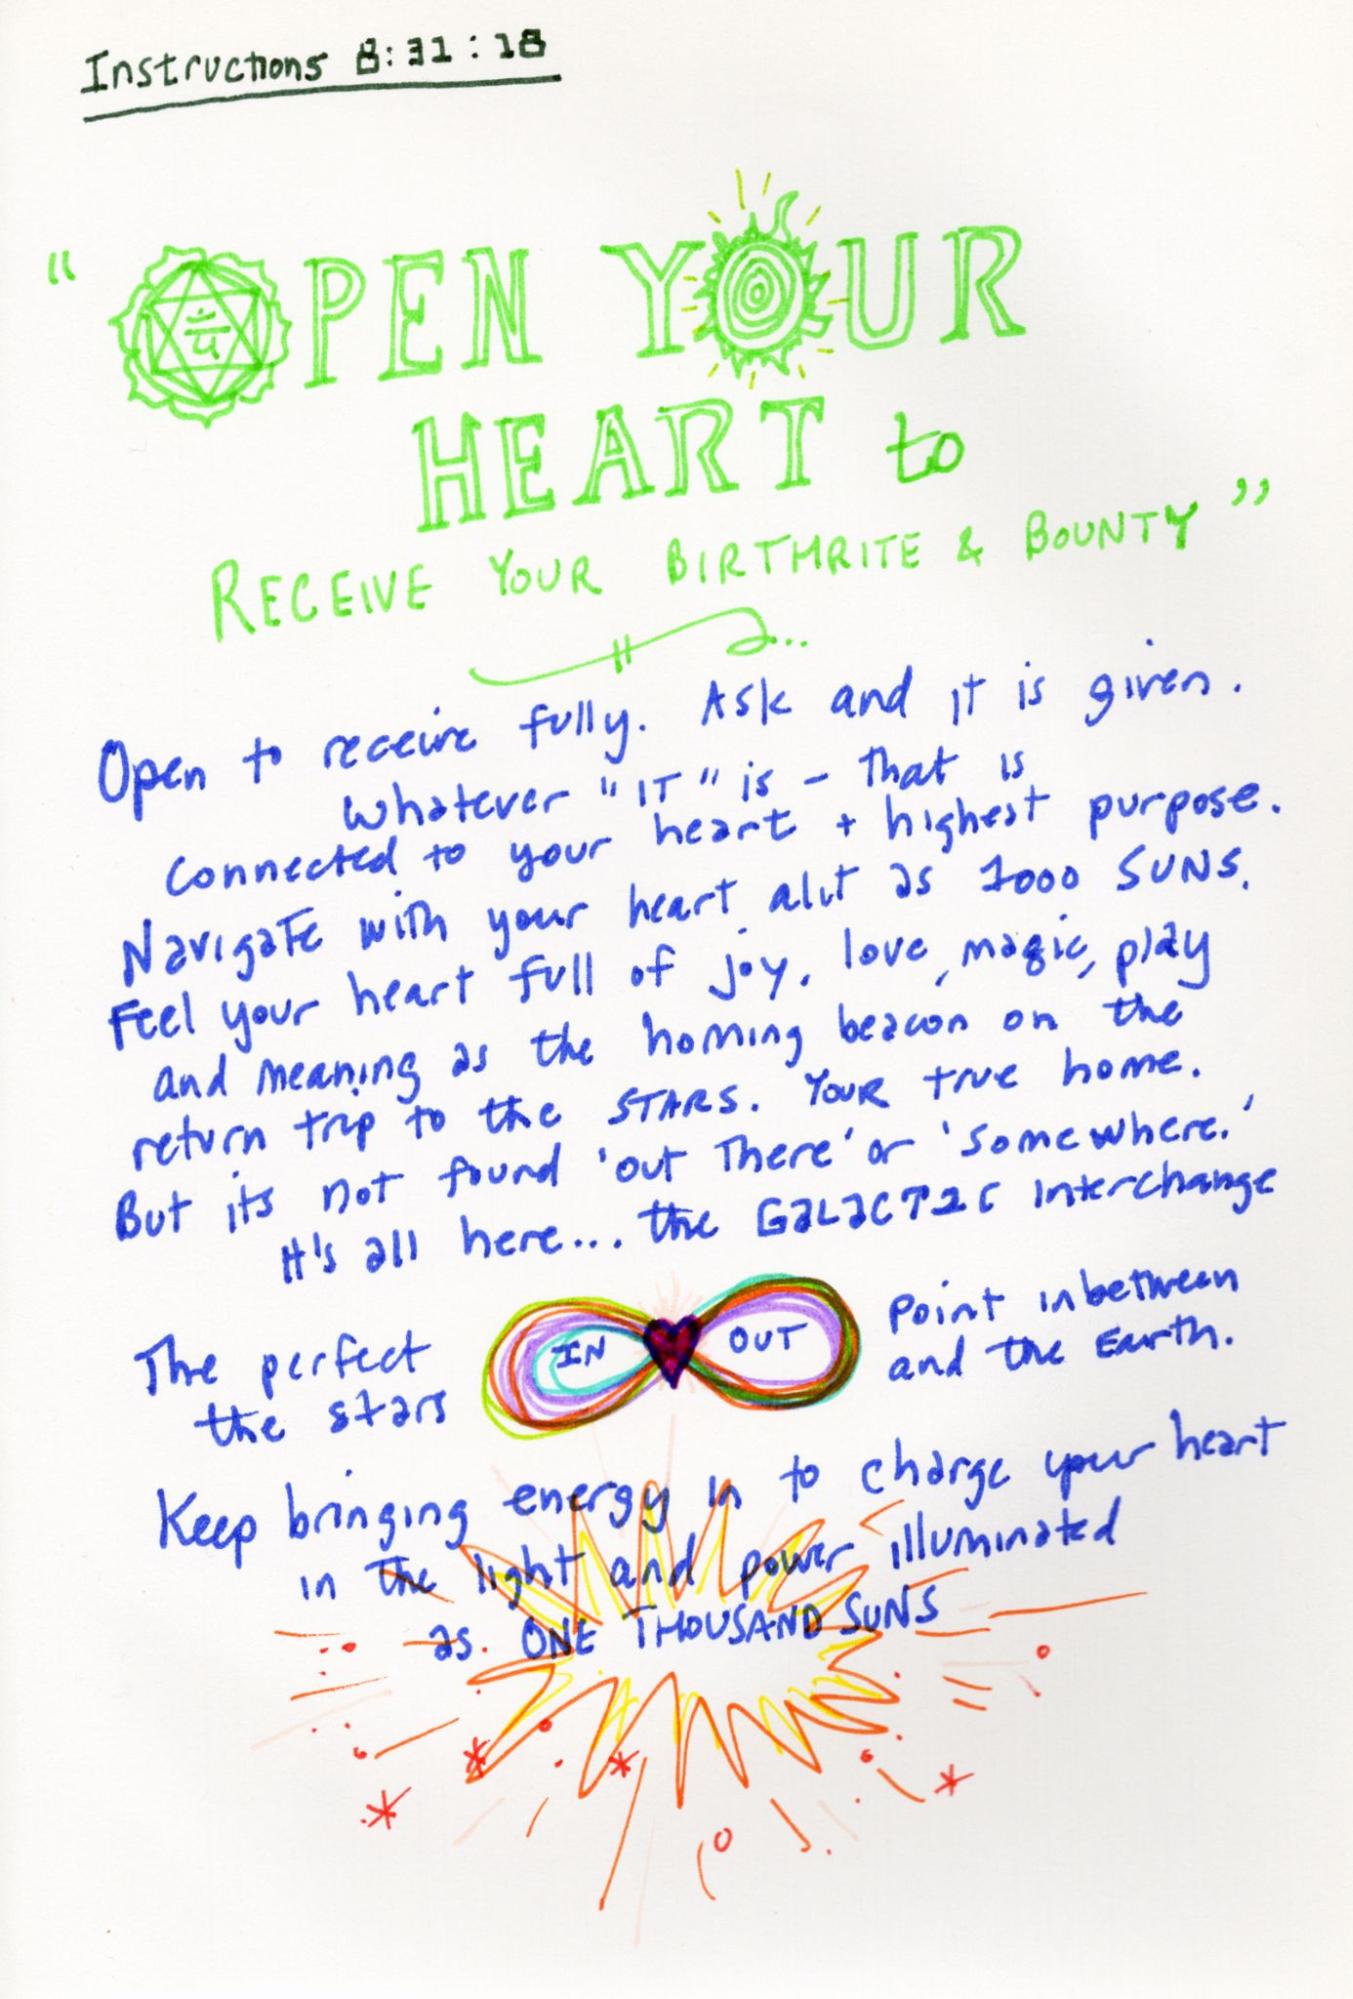 Instructions 8:31:18
"OPEN YOUR
HEART to
RECEIVE YOUR BIRTHRITE & BOUNTY"
Open to receive fully. Ask and it is given.
Whatever "IT" is - That is
connected to your heart + highest purpose.
Navigate with your heart alit as 1000 SUNS.
Feel your heart full of joy, love, magic, play
and meaning as the homing beacon on the
return trip to the STARS. Your true home.
But its not found 'out There' or 'somewhere.'
It's all here... the GALACTIC Interchange
The perfect IN OUT point inbetween
the stars and the Earth.
Keep bringing energy in to charge your heart
in the light and power illuminated
as ONE THOUSAND SUNS